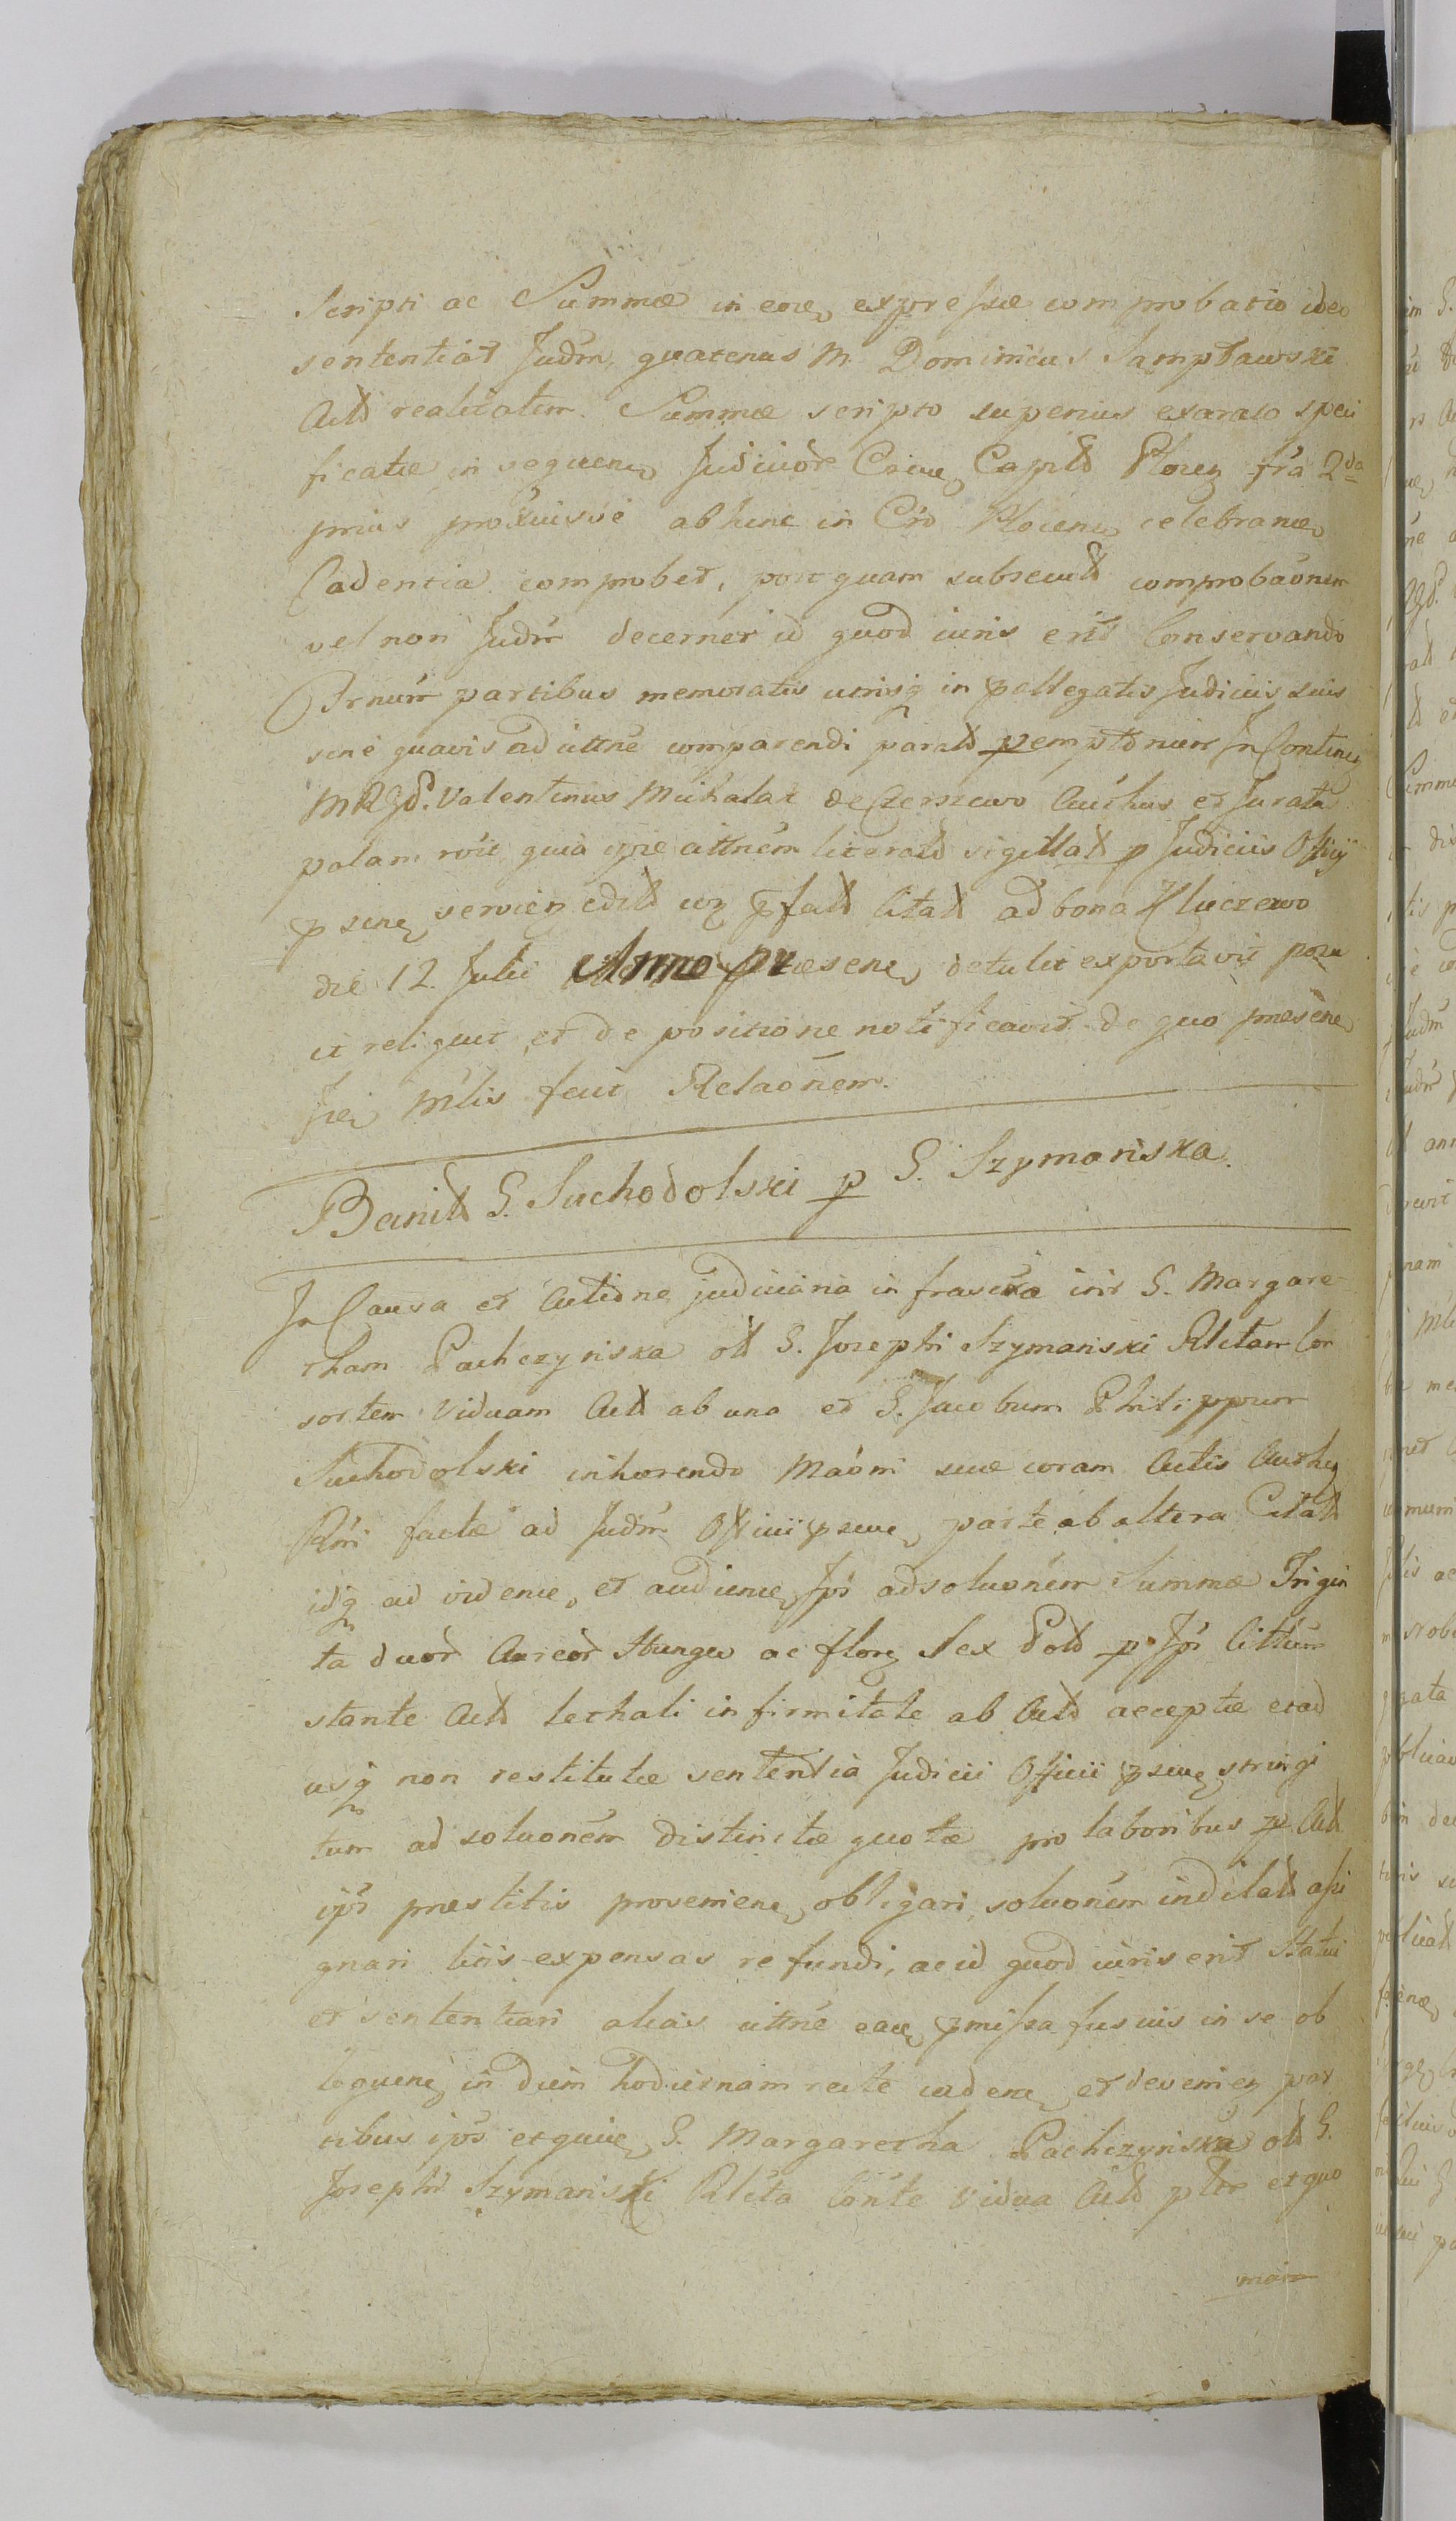 Scripti ac Summæ in eoq expressæ comprobatio ideo
sententiat Judm, quatenus M. Dominicus Sampławski
Actt realitatem Summæ scripto superius exarato speci
ficatæ in sequenq Judicior Criuq Capitt Plocq fra 2da
prius proxiusve abhinc in Cro Plocenq celebranæ
Cadentia comprobet, post quam subsecutt comprobaonem
vel non Judm decernet id quod iuris erit Conservando
Trnum partibus memoratis utrisq in pællegatis Judiciis suis
sine quavis ad cittne comparendi paratt pemptonum In Continq
MRgd. Valentinus Michalak de Czerniewo Authus et Jurata
palam roit quia ipse cittnem literatt sigillatt p Judiciis Officij
p senq servienq editt coq pfatt Citatt ad bona Kluczewo
die 12 Julii Anno præsenq detulit exportavit posu
it reliquit et de positione notificavit de quo præsenq
Jrei Mlis fecit Relaonem.
Banitt G. Suchodolski p G. Szymańska.
In Causa et Actione judiciaria infrascra intr G. Margare
tham Pachczyńska ott G. Josephi Szymański Rlctam Con
sortem Viduam Actt ab una et G. Jacobum Philippum
Suchodolski inhærendo Maoni suæ coram Actis Authq
Rni factæ ad Judm Officii psenq parte ab altera Citatt
idq ad videnq et audienq Jps adsoluonem Summæ Trigin
ta duor Aureor Hungar ac florq sex Poll p Jps Cittum
stante Actt lethali infirmitate ab Actt acceptæ et ad
usq non restitutæ sententia Judicii Officii psenq stringi
tum ad soluonem distinctæ quotæ pro laboribus p Actt
ips præstitis provenienq obligari, soluonem indilatt assi
gnari litis expensas refundi, ac id quod iuris erit Statui
et sententiari alias cittne eaq pmissa fusius in se ob
loquenq in diem hodiernam recte cadenq et devenienq par
tibus ips et quiq G. Margaretha Pachczyńska ott G.
Josephi Szymański Rlcta Conte Vidua Actt pltr et quo
main